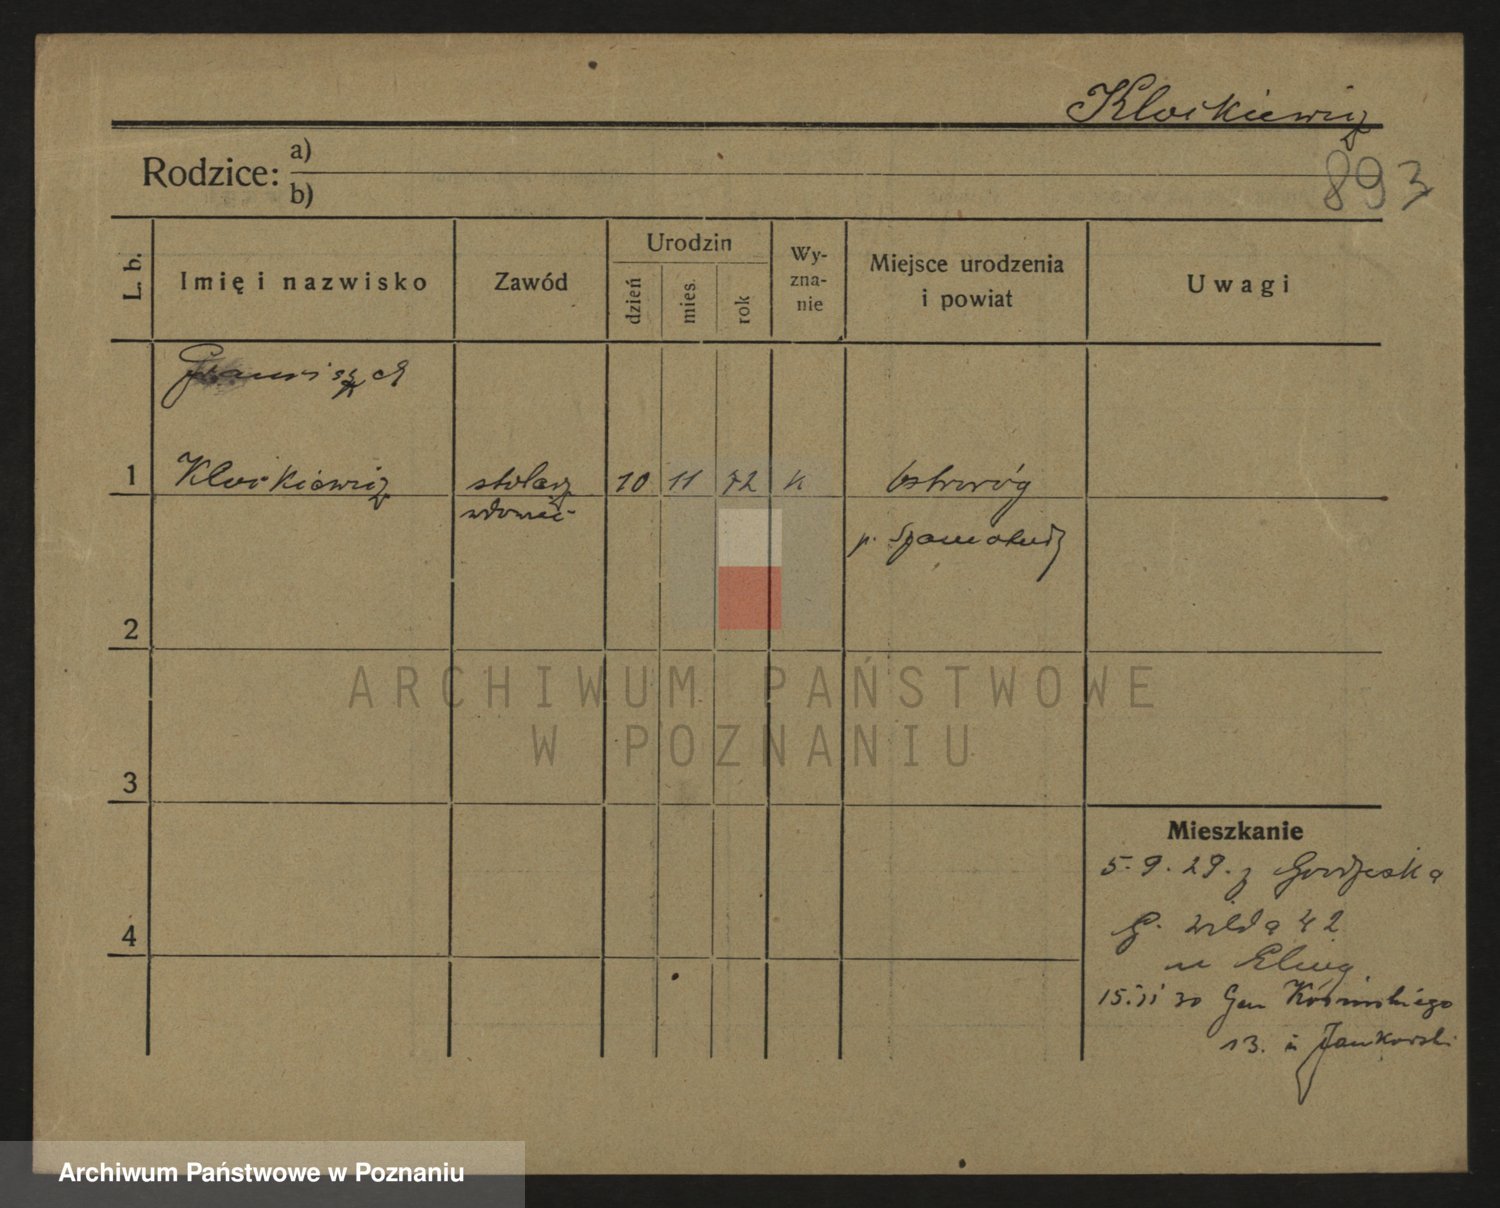 Kloskiewicz
Rodzice: a)
b)
893
L. b.
Imię i nazwisko
Zawód
Urodzin
dzień
mies.
rok
Wy-
zna-
nie
Miejsce urodzenia
i powiat
Uwagi
Franciszek
1 Kloskiewicz stolarz 10 11 72 k Ostroróg
wdowiec
p. Szamotuły
2
ARCHIWUM PAŃSTWOWE
W POZNANIU
3
Mieszkanie
5.9.29. z Grodziska
G. Wilda 42
4
u
15.11 30 Gen Kosińskiego
13. u Jankowski
Archiwum Państwowe w Poznaniu